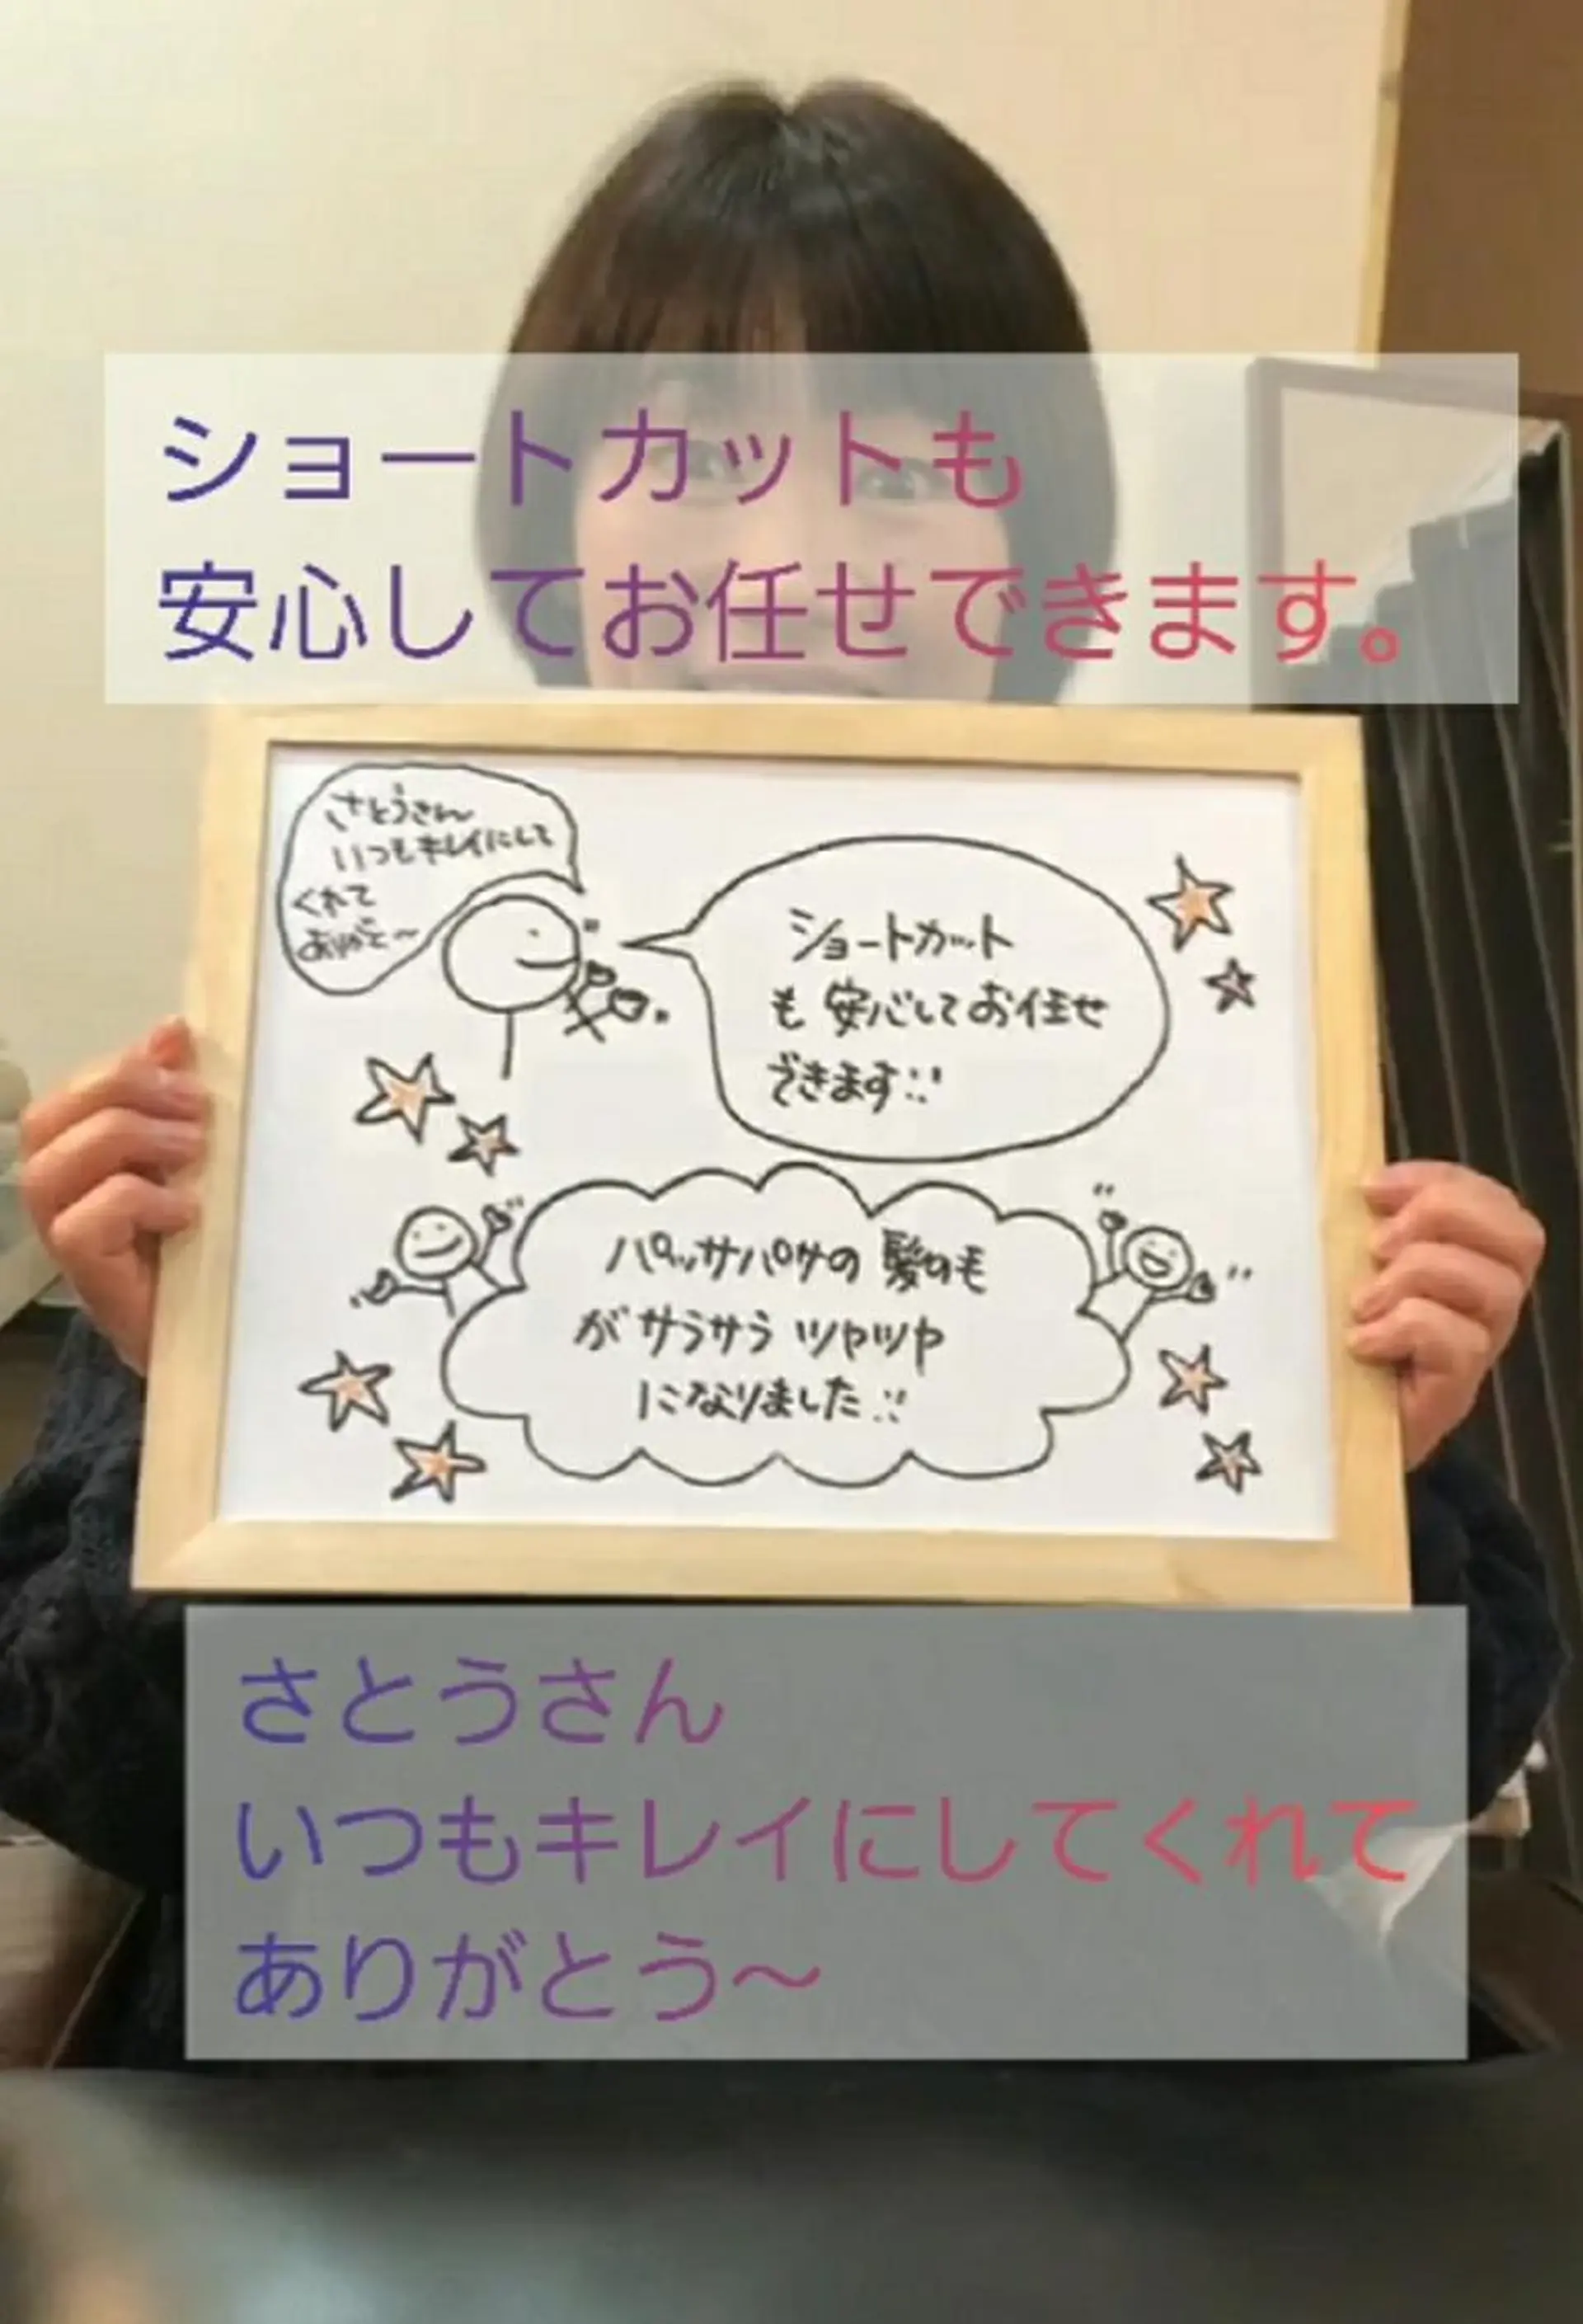 ショートカットも
安心してお任せできます。
さとうさん
いつもキレイにして
くれて
ありがと〜
ショートカット
も安心してお任せ
できます!!
パッサパサの髪のモ
がサラサラツヤツヤ
になりました!!
さとうさん
いつもキレイにしてくれて
ありがとう〜